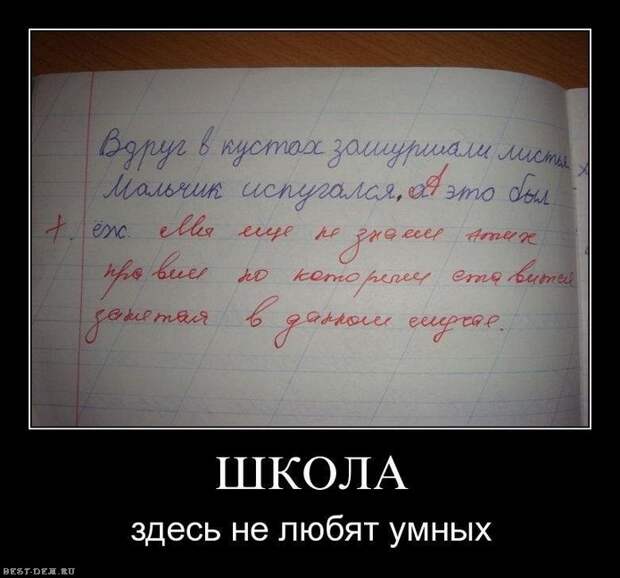 Вдруг в кустах зашуршали листья
Мальчик испугался. а А это был
ёж. Мы еще не знаем этих
правил по которым ставится
запятая в данном случае.
ШКОЛА
здесь не любят умных
BEST-DEM.RU